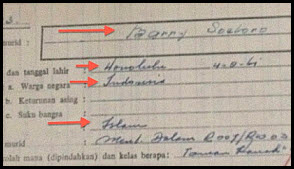 3.
murid :
Barry Soetoro
dan tanggal lahir : Honolulu 4-8-61
a. Warga negara : Indonesia
b. Keturunan asing :
c. Suku bangsa :
Islam
murid : Ment. Dalam R007/Rw 03
olah mana (dipindahkan) dan kelas berapa: Taman Kanak²